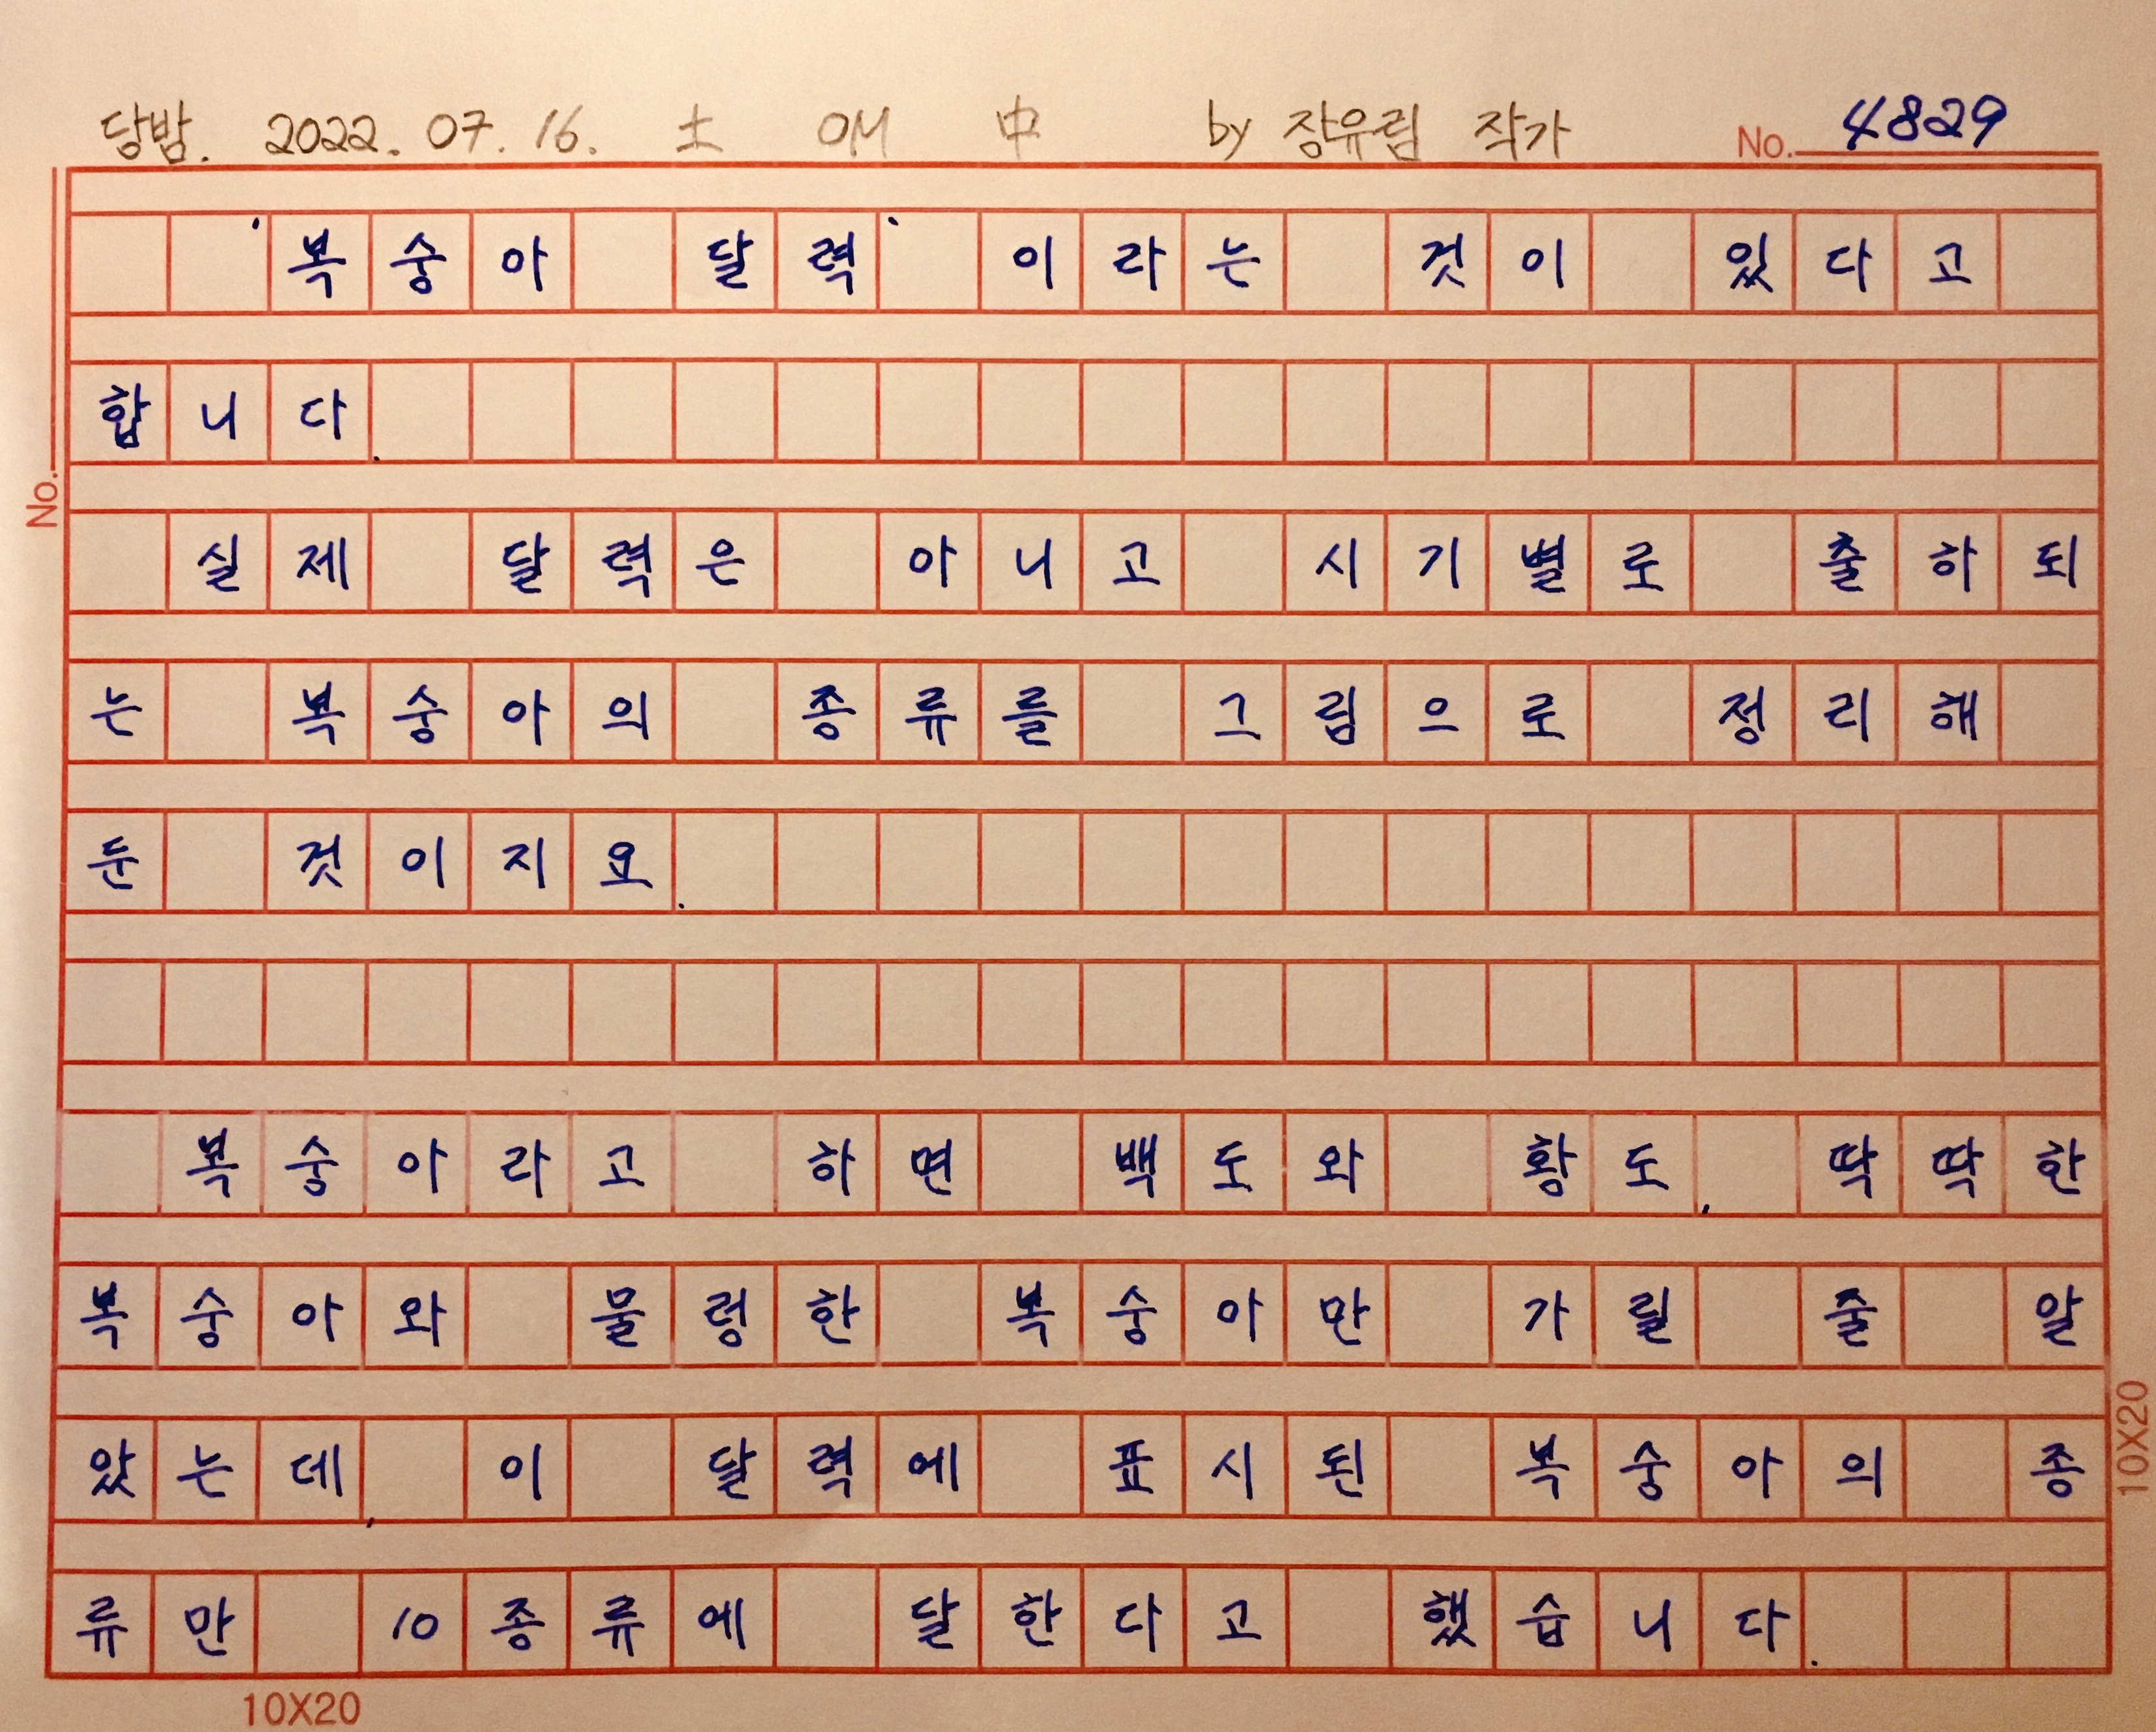 당밤. 2022. 07. 16. 土 OM 中 by 장유림 작가 No. 4829
'복숭아 달력' 이라는 것이 있다고
합니다.
실제 달력은 아니고 시기별로 출하되
는 복숭아의 종류를 그림으로 정리해
둔 것이지요.
복숭아라고 하면 백도와 황도, 딱딱한
복숭아와 물렁한 복숭아만 가릴 줄 알
았는데, 이 달력에 표시된 복숭아의 종
류만 10종류에 달한다고 했습니다.
No.
10X20
10X20